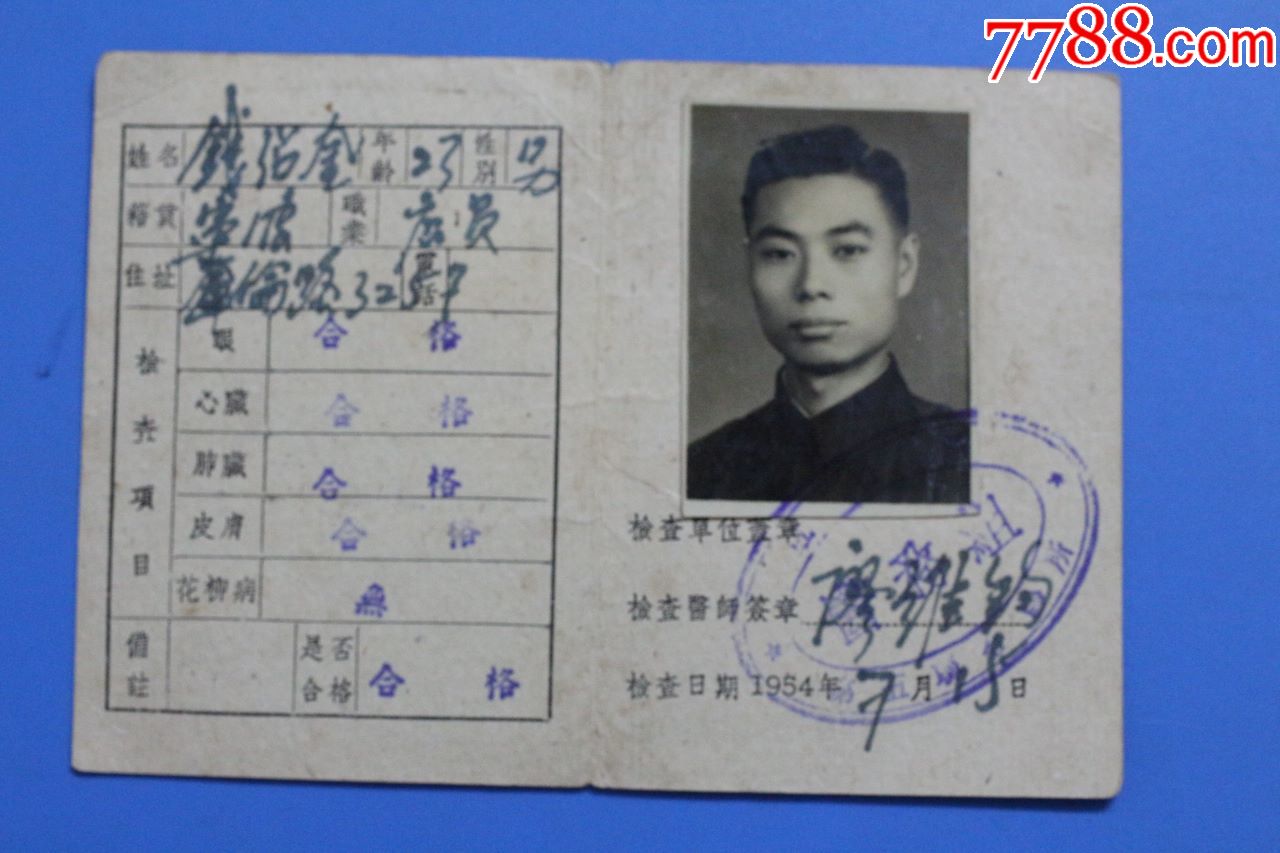 7788.com
姓名 錢 年齡 23 性別 男
籍貫 寧波 職業 店員
住址 倫路 電話
檢查項目
眼 合格
心臟 合格
肺臟 合格
皮膚 合格
花柳病 無
備註 是否合格 合格
檢查單位蓋章
檢查醫師簽章 廖維鈞
檢查日期 1954年 7月 15日